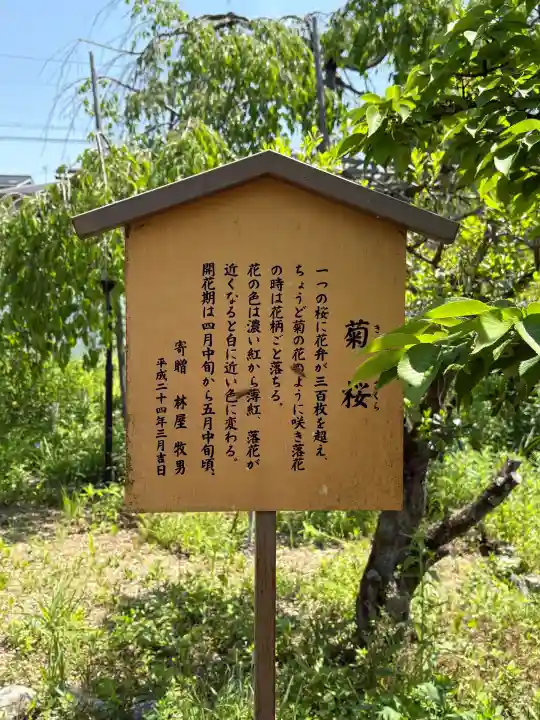 菊桜
一つの桜に花弁が三百枚を超え、
ちょうど菊の花のように咲き落花
の時は花柄ごと落ちる。
花の色は濃い紅から薄紅、落花が
近くなると白に近い色に変わる。
開花期は四月中旬から五月中旬頃、
寄贈 林屋 牧男
平成二十四年三月吉日